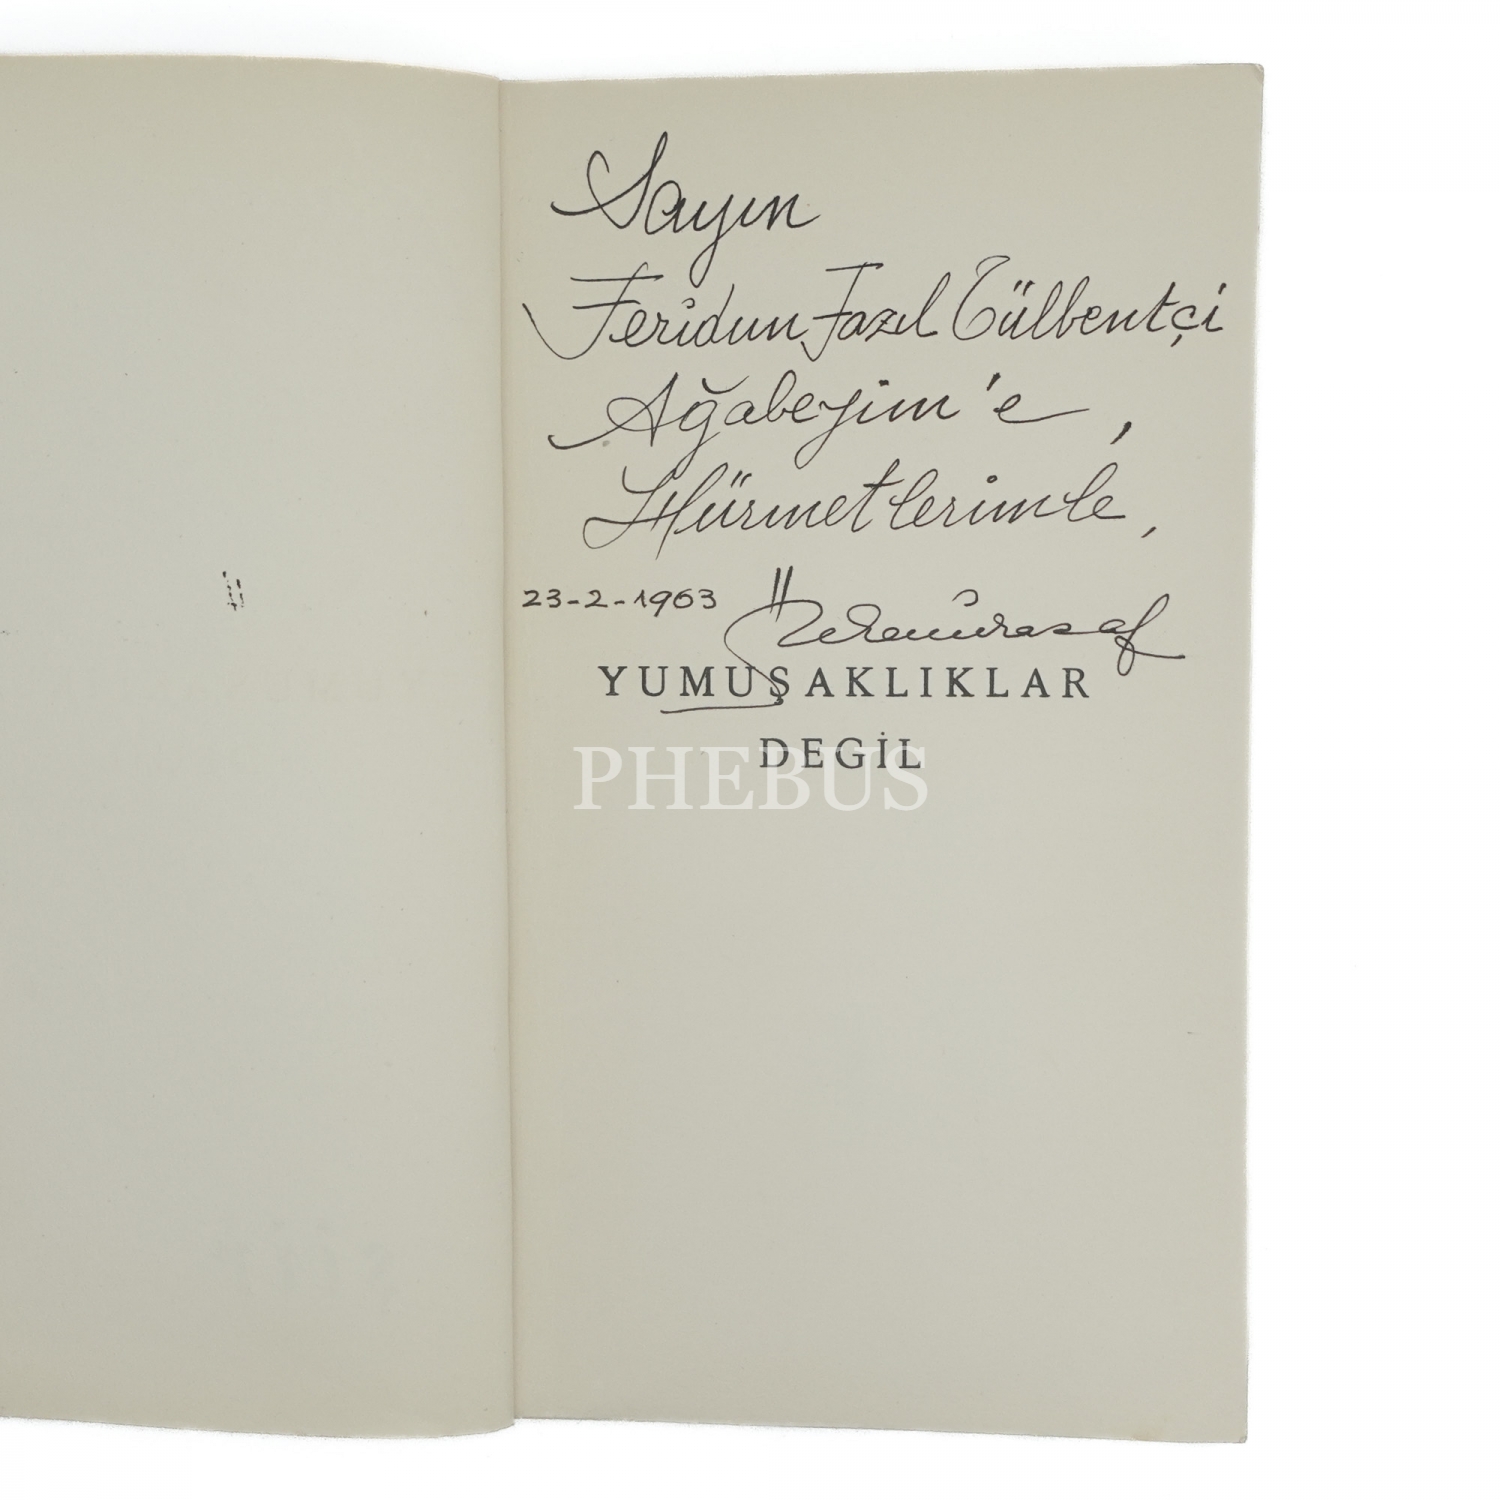 Sayın
Feridun Fazıl Tülbentçi
Ağabeyim'e,
Hürmetlerimle,
23-2-1963
YUMUŞAKLIKLAR
DEĞİL
PHEBUS